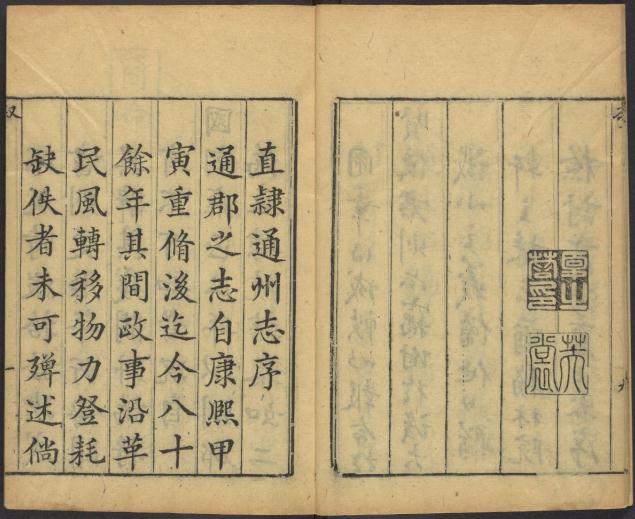 直隸通州志序
通郡之志自康熈甲
寅重脩後迄今八十
餘年其間政事沿革
民風轉移物力登耗
缺佚者未可殫述倘